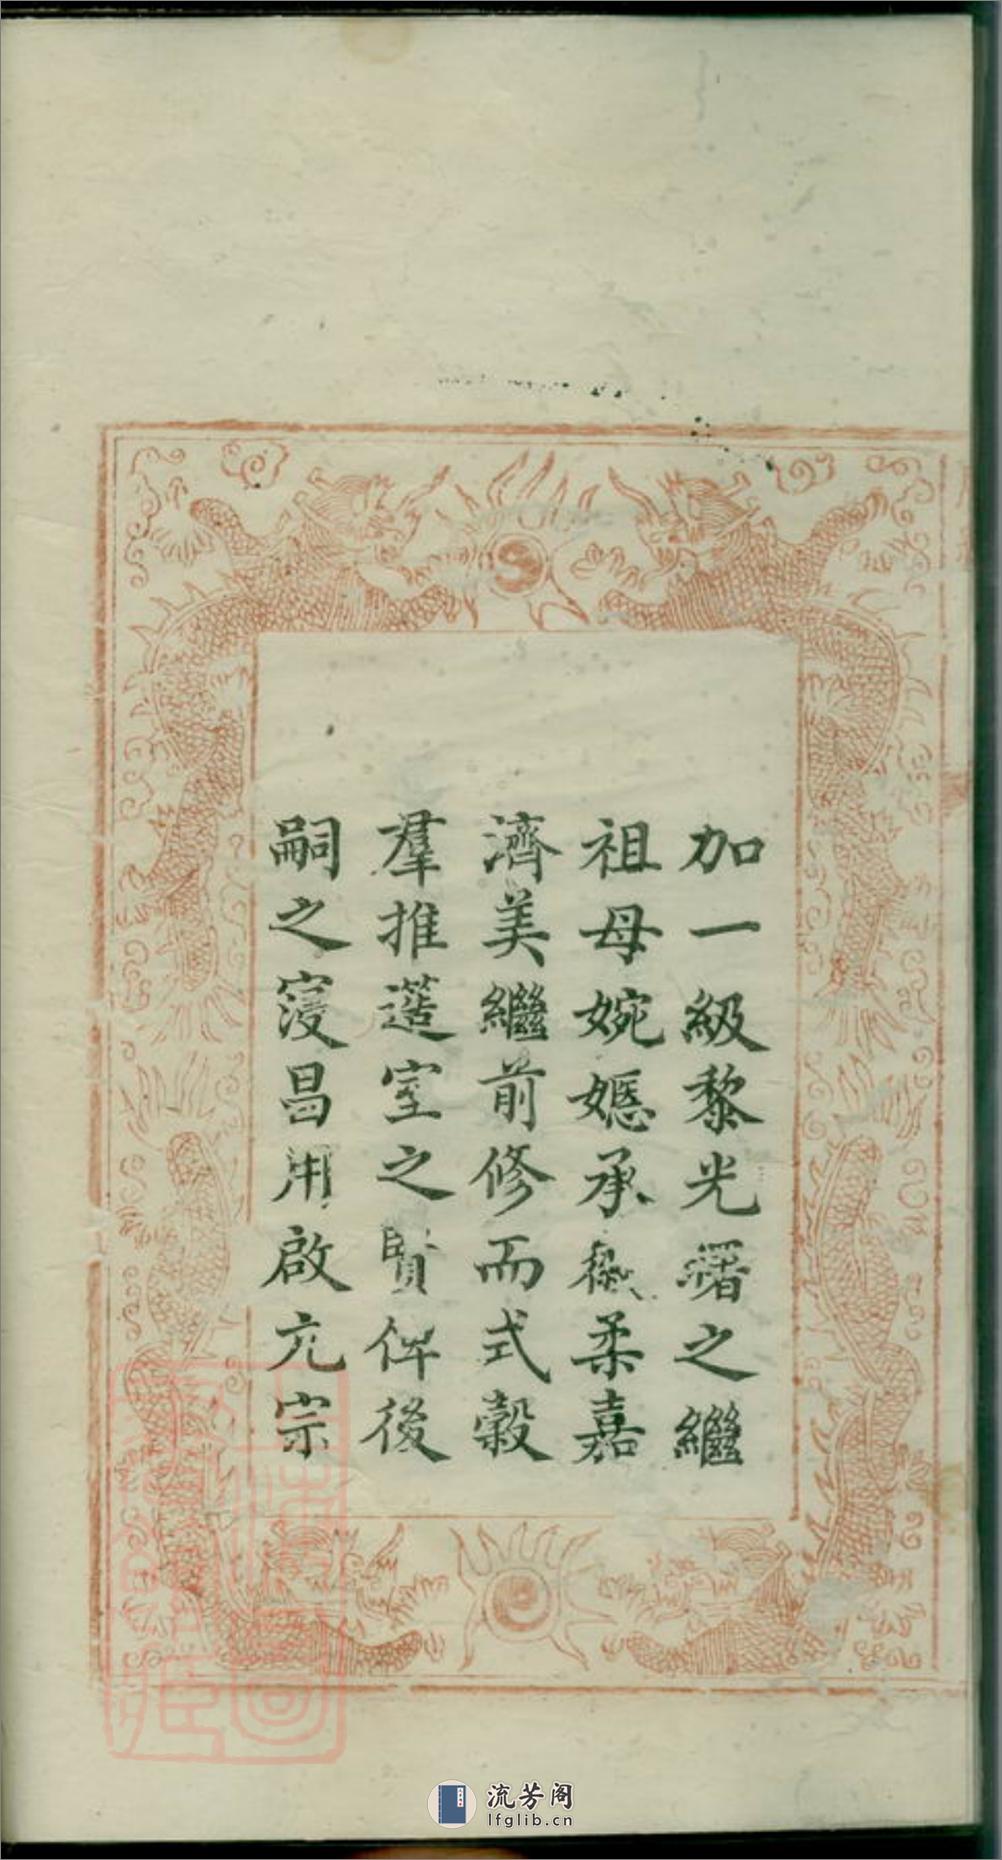 加一級黎光曙之繼
祖母婉嫕承徽柔嘉
濟美繼前修而式穀
羣推簉室之賢俾後
嗣之寖昌用啟亢宗
流芳阁
lfglib.cn